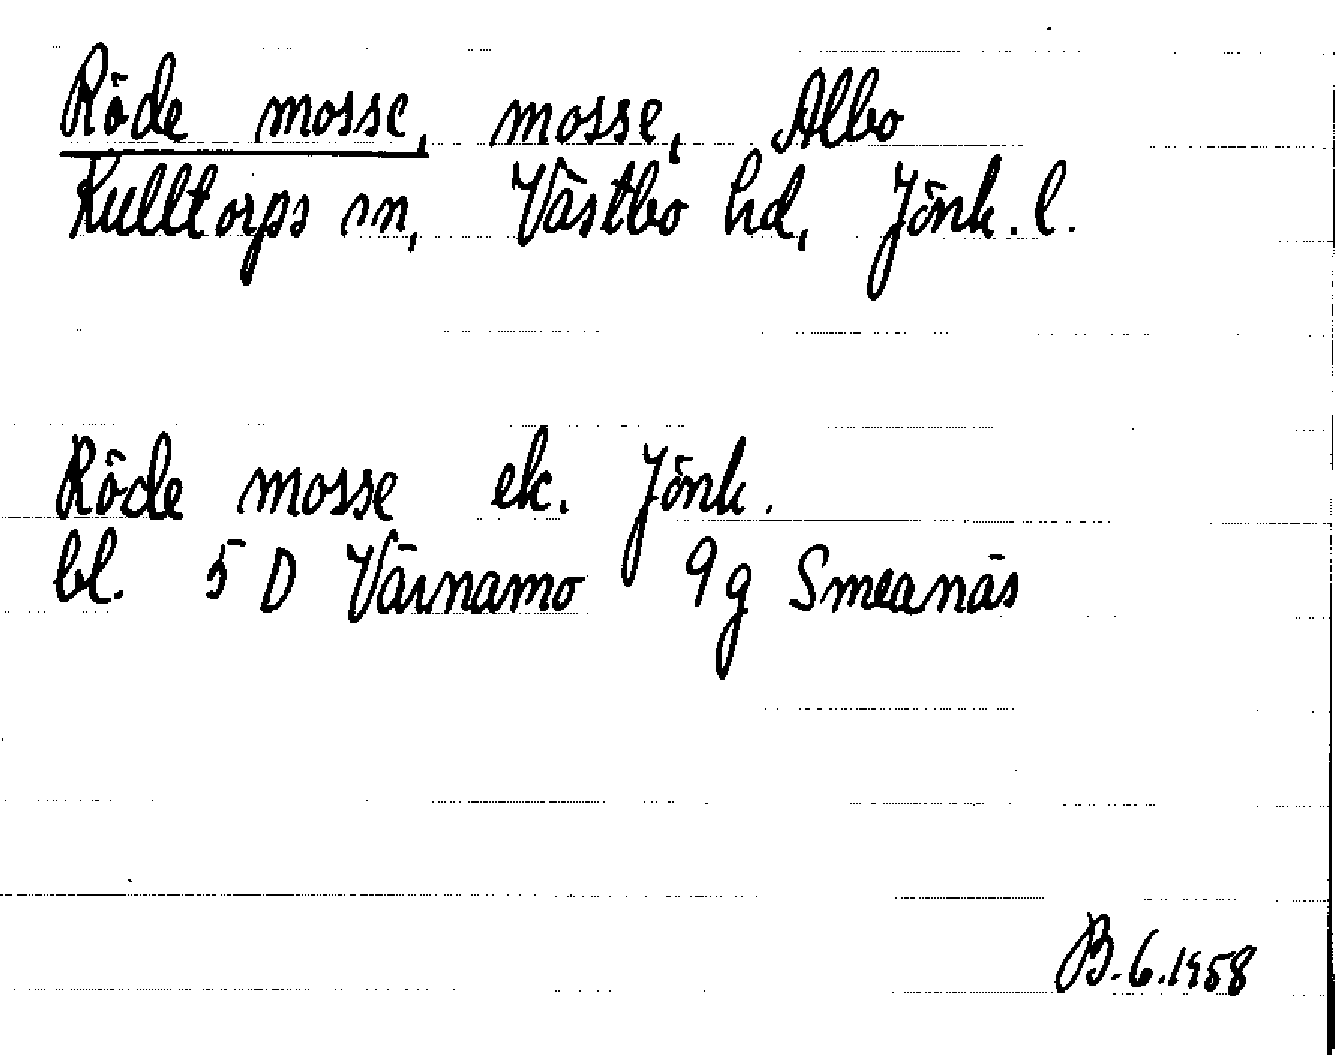 Röde mosse, mosse, Albo
Kulltorps sn, Västbo hd, Jönk. l.
Röde mosse ek. Jönk.
bl. 5 D Värnamo 9g Smeanäs
B. 6. 1958